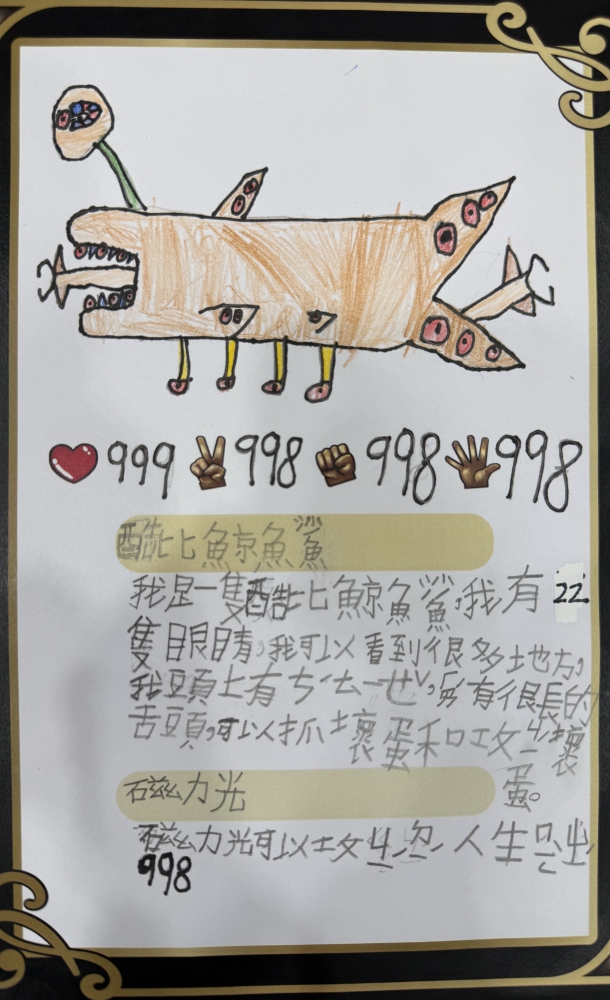 999 998 998 998
酷比鯨魚鯊
我是一隻酷比鯨魚鯊,我有22
隻眼睛,我可以看到很多地方,
我頭上有ㄘˊㄊㄧㄝˇ,有很長的
舌頭,可以抓壞蛋和攻ㄐㄧˊ壞
蛋。
磁力光
磁力光可以攻ㄐㄧˊ人生出
998